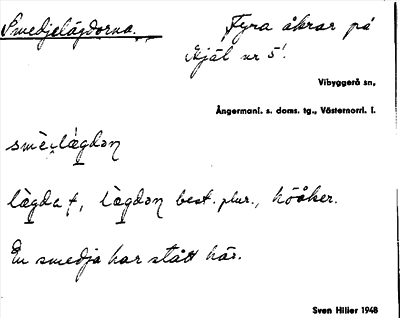 Smedjelägdorna.
Fyra åkrar på
Äjäl nr 5.
Vibyggerå sn,
Ångermanl. s. doms. tg., Västernorrl. l.
smè,lägdən
lägda f, lägdən best. plur., höåker.
En smedja har stått här.
Sven Hilier 1948